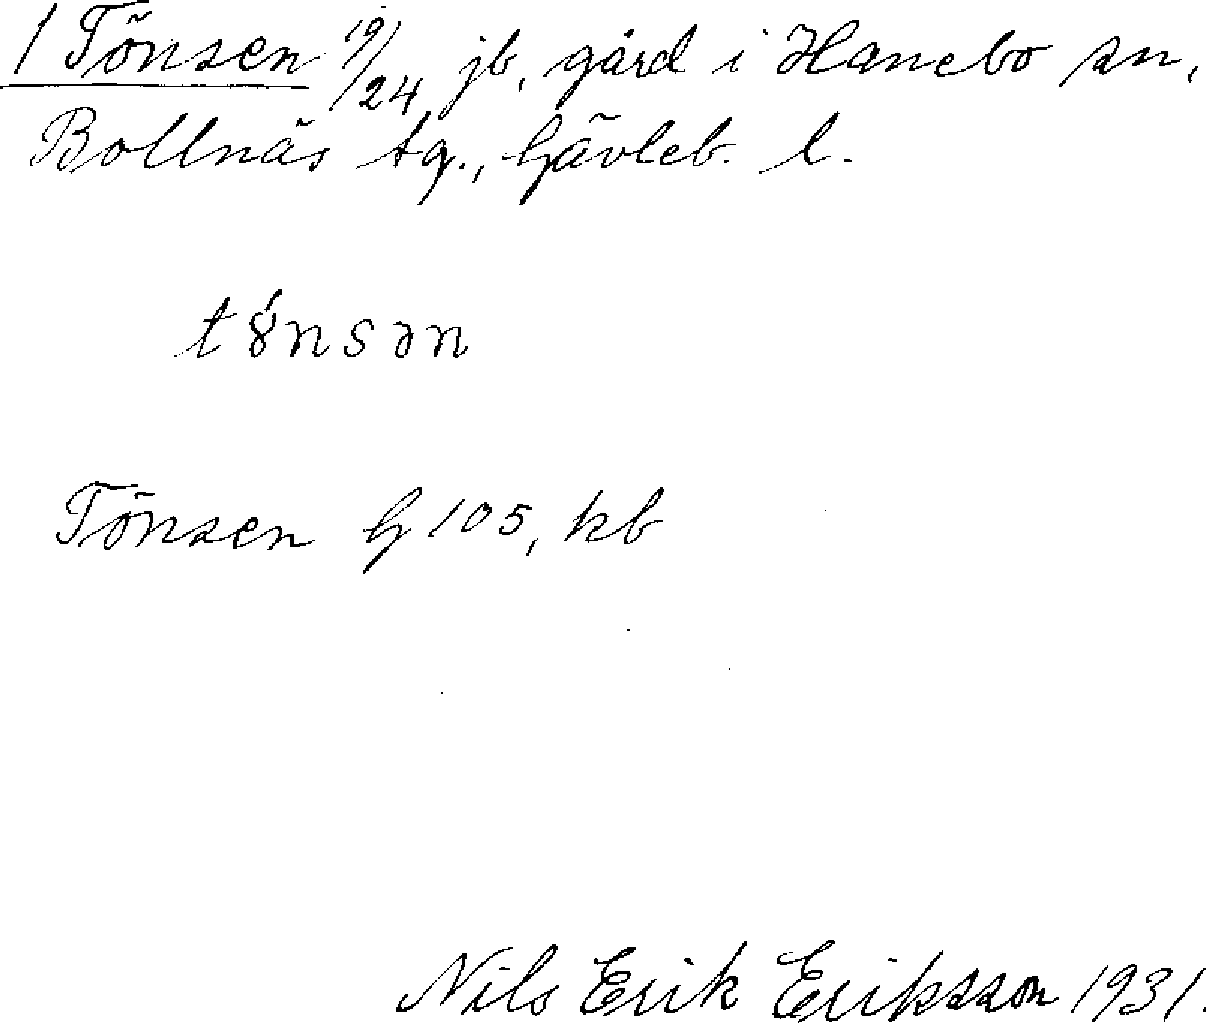 1 Tönsen 19/24 jb, gård i Hanebo sn,
Bollnäs tg., Gävleb. l.
tǿnsən
Tönsen G 105, kb
Nils Erik Eriksson 1931.